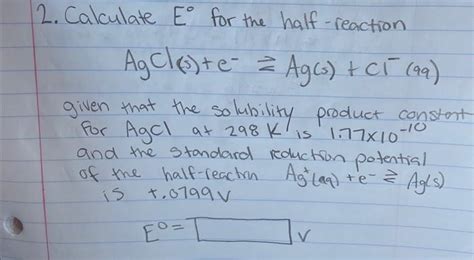 2. Calculate E° for the half-reaction
AgCl(s)+e⁻ ⇌ Ag(s) + Cl⁻(aq)
given that the solubility product constant
for AgCl at 298 K is 1.77x10⁻¹⁰
and the standard reduction potential
of the half-reactin Ag⁺(aq) +e⁻ ⇌ Ag(s)
is +.0799v
E°= v